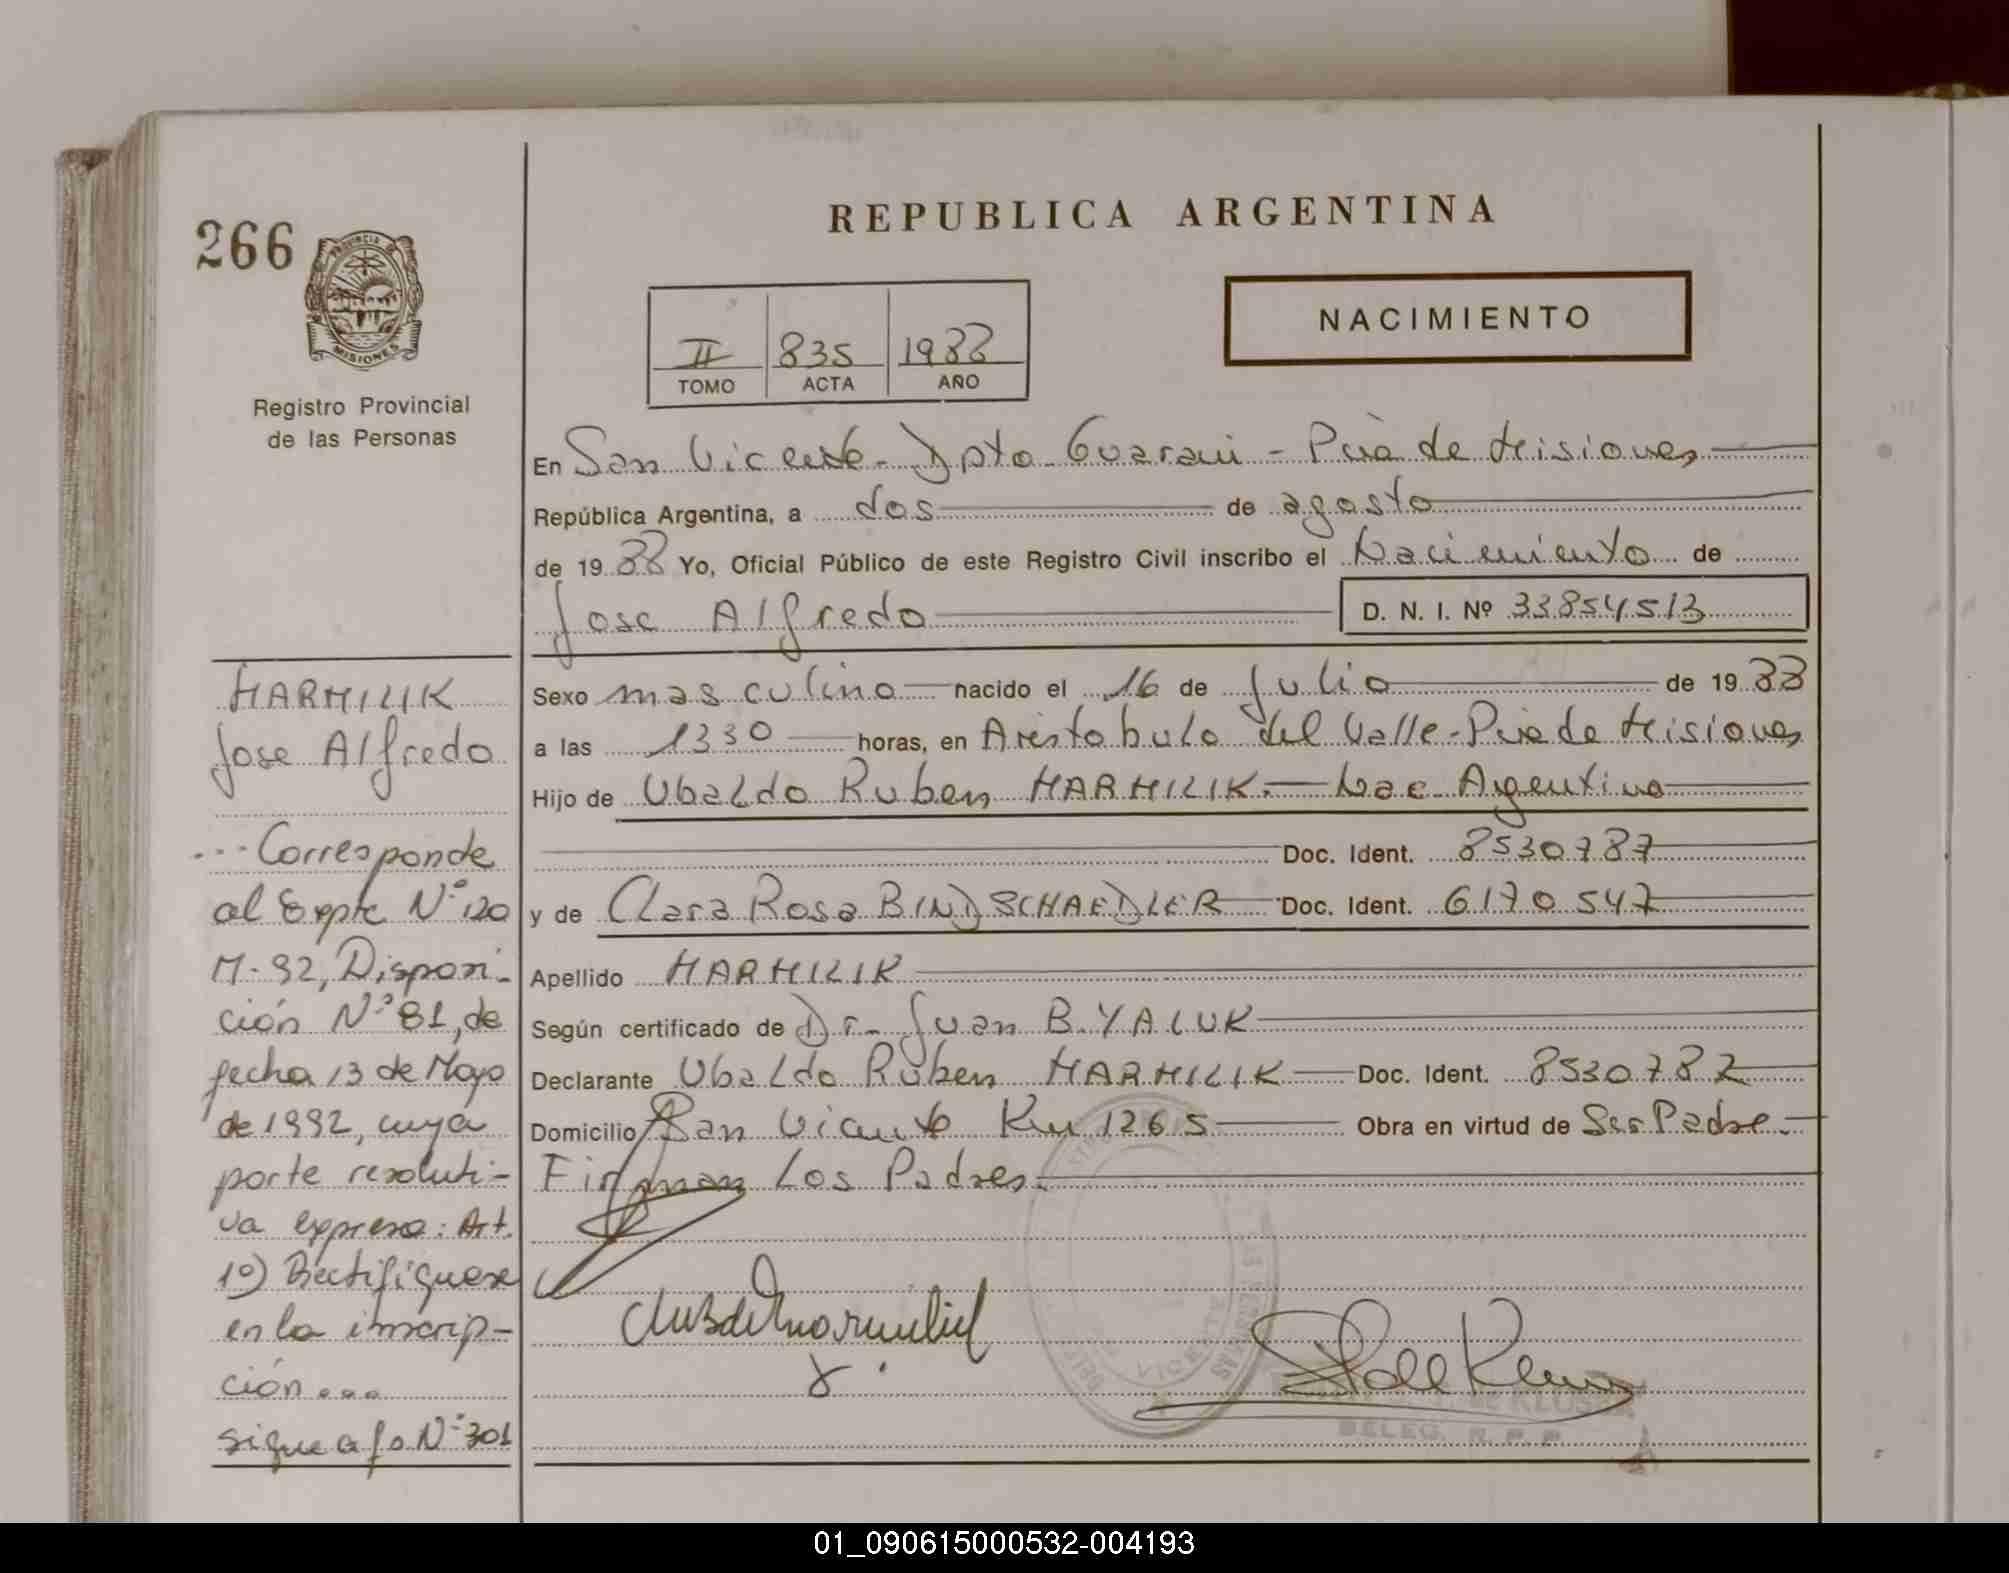 266
PROVINCIA DE
MISIONES
Registro Provincial
de las Personas
REPUBLICA ARGENTINA
II 835 1988
TOMO ACTA AÑO
NACIMIENTO
En San Vicente - Dpto Guarani - Pcia de Misiones
República Argentina, a dos de agosto
de 1988 Yo, Oficial Público de este Registro Civil inscribo el Nacimiento de
Jose Alfredo D. N. I. Nº 33854513
Sexo masculino nacido el 16 de Julio de 1988
a las 1330 horas, en Aristobulo del Valle - Pcia de Misiones
Hijo de Ubaldo Ruben MARMILIK. Nac. Argentino
Doc. Ident. 8530787
y de Clara Rosa BINDSCHAEDLER Doc. Ident. 6170547
Apellido MARMILIK
Según certificado de Dr. Juan B. YALUK
Declarante Ubaldo Ruben MARMILIK Doc. Ident. 8530787
Domicilio San Vicente Km 1265 Obra en virtud de Ser Padre.
Firman Los Padres.
MARMILIK
Jose Alfredo
...Corresponde
al Expte Nº 120
M-92, Disposi-
ción Nº 81, de
fecha 13 de Mayo
de 1992, cuya
parte resoluti-
va expresa: Art.
1º) Rectifíquese
en la inscrip-
ción...
sigue a fo Nº 301
DELEG. R. P. P.
01_090615000532-004193